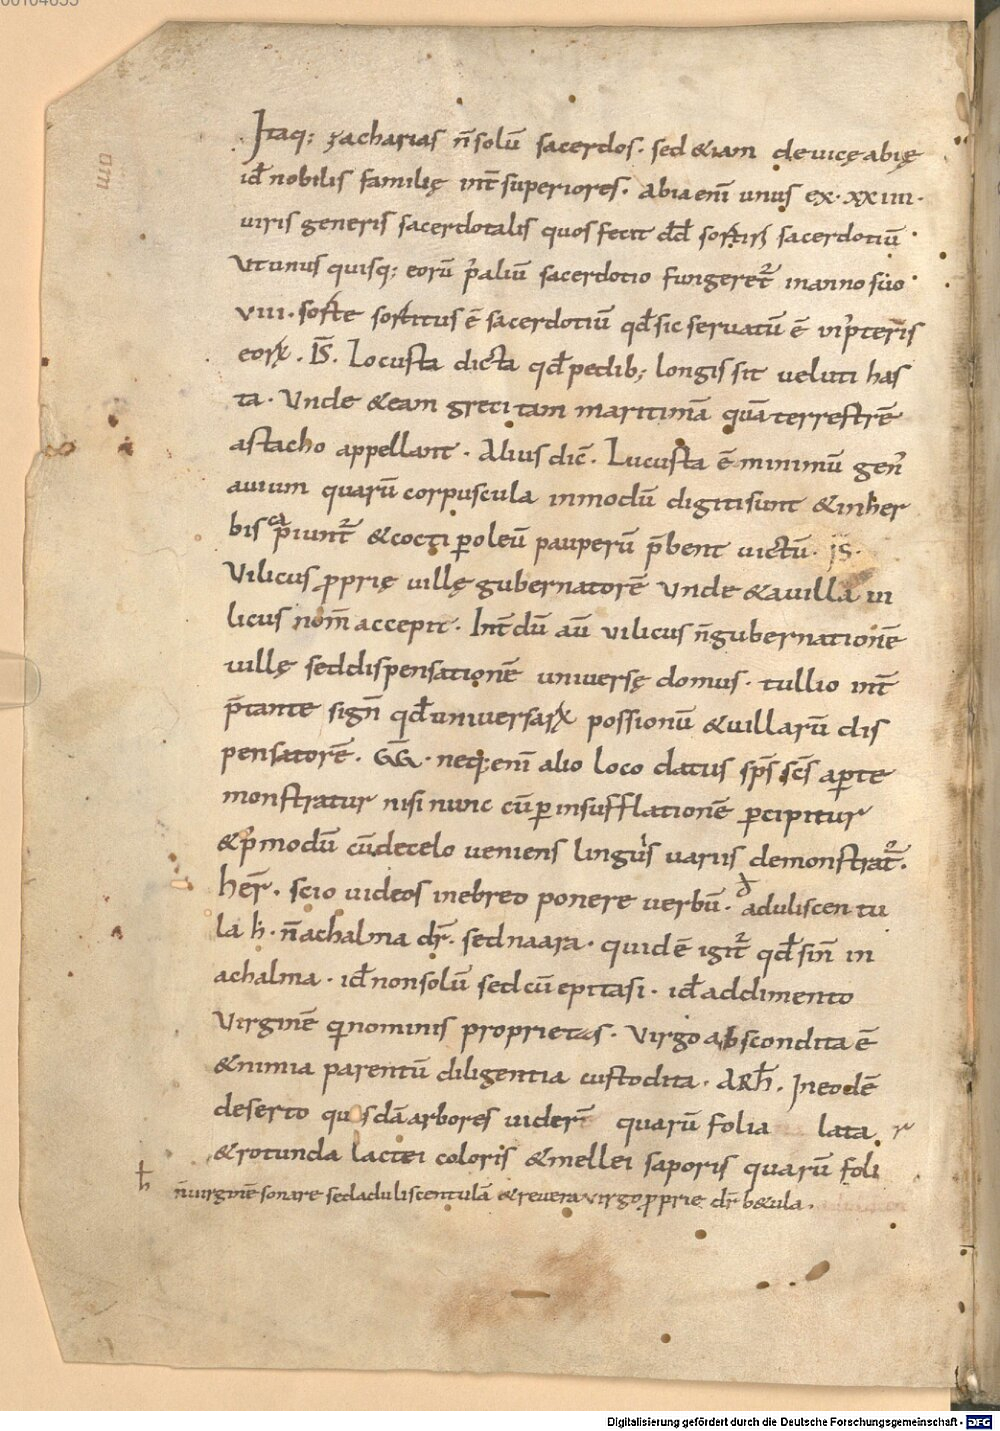 00104055
am
Itaq; zacharias n̄ solū sacerdos. sed &iam de uice abię
id̄ nobilis familię int̄ superiores. Abia enī unus ex. xxiiii.
uiris generis sacerdotalis quos fecit dd̄ sortiri sacerdotiū
Vt unus quisq; eorū p̄ aliū sacerdotio fungeret᷑ in anno suo
viii. sorte sortitus ē sacerdotiū qd̄ sic seruatū ē in p̄teris
eoꝝ. IS̄. Locusta dicta qd̄ pedib; longis sit ueluti has
ta. Vnde & eam greci tam maritimā quā terrestrē
astacho appellant. Alius dic̄. Lucusta ē minimū gen̄
auium quarū corpuscula in modū digiti sunt & in her
bis capiunt᷑ & cocti ꝑ oleū pauperū p̄bent uictū. IS.
Vilicus ꝓprię uillę gubernatorē Vnde & a uilla ui
licus nom̄ accepit. Int̄dū aū vilicus n̄ gubernationē
uillę sed dispensationē uniuersę domus. tullio int̄
p̄tante sign̄ qd̄ uniuersaꝝ possionū & uillarū dis
pensatorē. GG. neq; enī alio loco datus sp̄s sc̄s aꝑte
monstratur nisi nunc cū ꝑ insufflationē ꝑcipitur
& p̄modū cū de celo ueniens linguis uariis demonstrat᷑.
her̄. scio uideos in ebreo ponere uerbū. aduliscentu
la h̄. n̄ achalma dr̄. sed naara. quid ē igit᷑ qd̄ sin̄ in
achalma. id̄ non solū sed cū epitasi. id̄ addimento
Virginē qi nominis proprietas. Virgo abscondita ē
& nimia parentū diligentia custodita. ARh̄. In eodē
deserto quasdā arbores uider̄ quarū folia lata r
& rotunda lactei coloris & mellei saporis quarū foli
n̄ uirginē sonare sed aduliscentulā & reuera uirgo ꝓprie dr̄ b&ula.
Digitalisierung gefördert durch die Deutsche Forschungsgemeinschaft - DFG